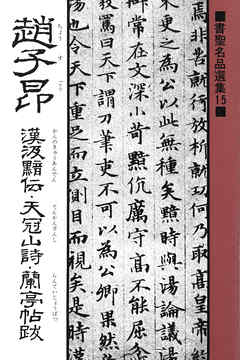 ■書聖名品選集15■
焉非苦就行放析就功何乃取高皇帝
更之為公以此無種矣黯時與湯論議湯
辯常在文深小苛黯伉厲守高不能屈忿
發罵曰天下謂刀筆吏不可以為公卿果然必
湯也令天下重足而立側目而視矣是時漢
趙子昂
ちょうすごう
漢汲黯伝・天冠山詩・蘭亭帖跋
かんのきゅうあんでん
てんかんざんし
らんていじょうばつ